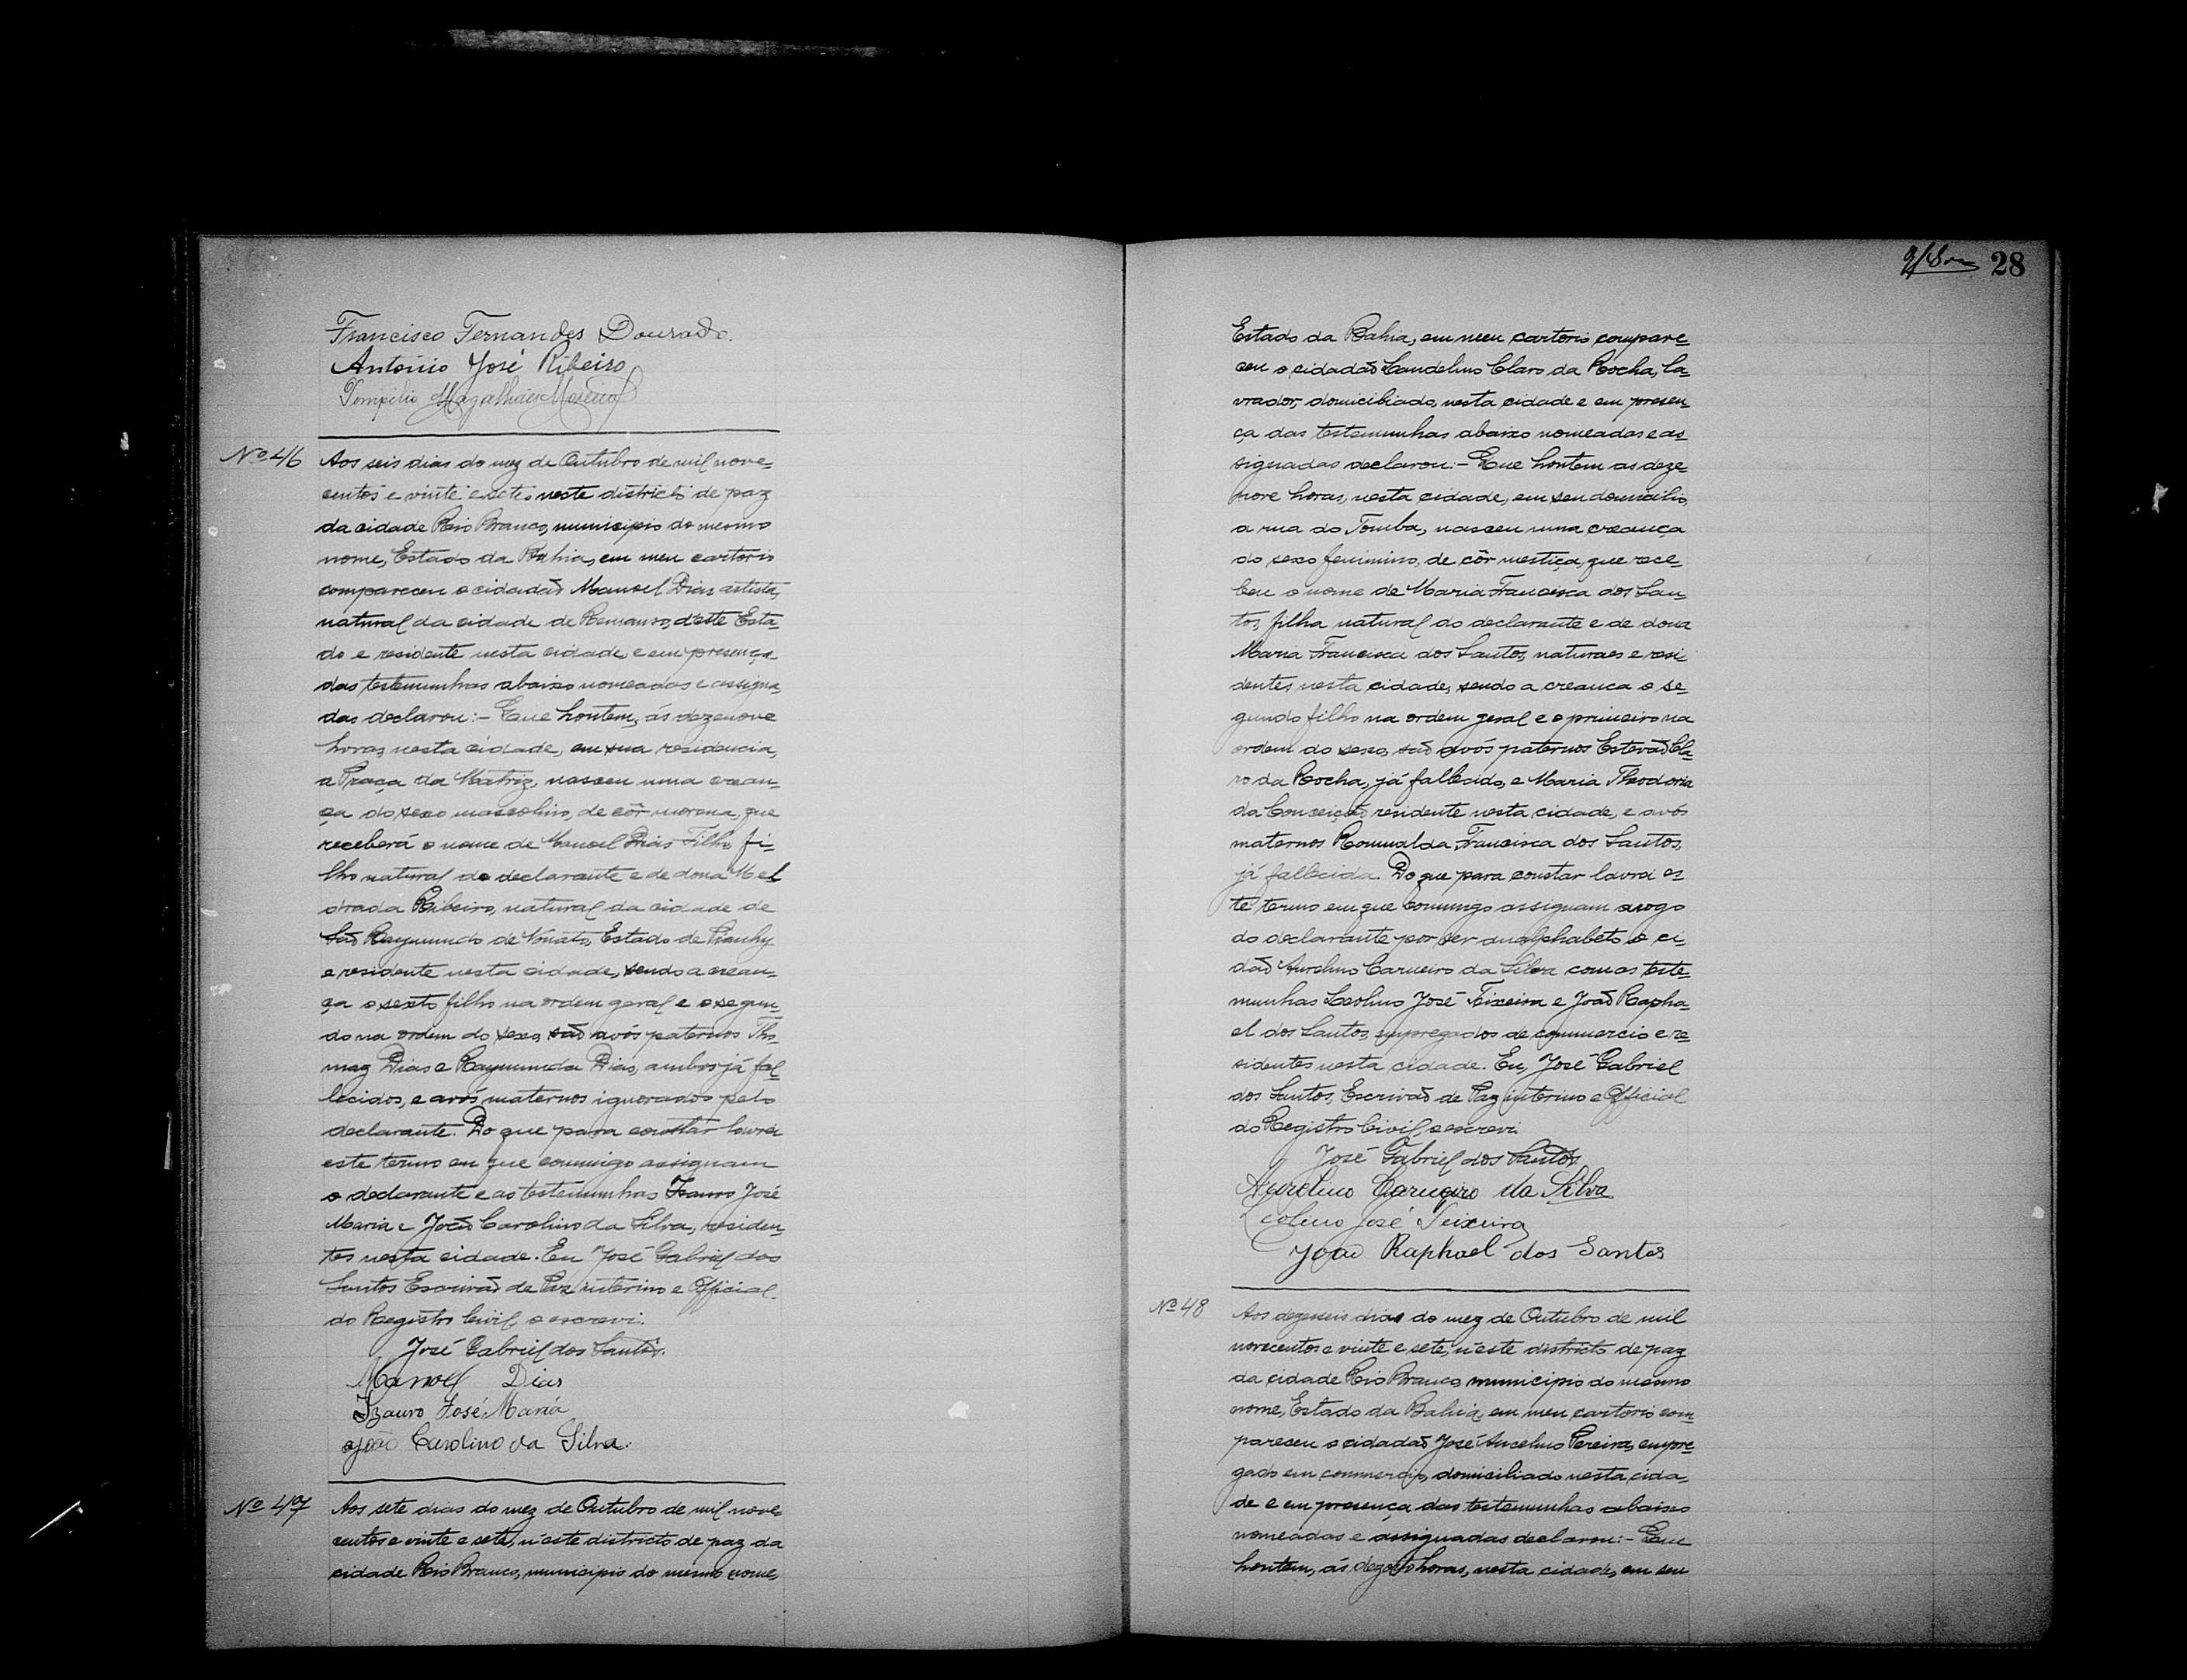 Francisco Fernandes Dourado.
Antonio José Ribeiro
Pompilio Magalhães Moreira
Nº 46
Aos seis dias do mez de Outubro de mil nove-
centos e vinte e sete, neste districto de paz
da cidade Rio Branco, municipio do mesmo
nome, Estado da Bahia, em meu cartorio
compareceu o cidadão Manoel Dias artista,
natural da cidade de Remanso, d'este Esta-
do e residente nesta cidade, e em presença
das testemunhas abaixo nomeadas e assigna
das declarou:- Que hontem, ás dezenove
horas, nesta cidade, em sua residencia,
a Praça da Matriz, nasceu uma crean-
ça do sexo masculino, de côr morena, que
receberá o nome de Manoel Dias Filho fi-
lho natural do declarante e de dona
Ribeiro, natural da cidade de
São Raymundo de Nonato, Estado de Piauhy
e residente nesta cidade, sendo a crean-
ça o sexto filho na ordem geral e o segun-
do na ordem do sexo, são avós paternos Tho-
maz Dias e Raymunda Dias, ambos já fal-
lecidos, e avós maternos ignorados pelo
declarante. Do que para constar lavrei
este termo em que commigo assignam
o declarante e as testemunhas Izauro José
Maria e João Carolino da Silva, residen-
tes nesta cidade. Eu José Gabriel dos
Santos Escrivão de Paz interino e Official
do Registro Civil, o escrevi.
José Gabriel dos Santos.
Manoel Dias
Izauro José Maria
João Carolino da Silva.
Nº 47
Aos sete dias do mez de Outubro de mil nove-
centos e vinte e sete, n'este districto de paz da
cidade Rio Branco, municipio do mesmo nome,
28
Estado da Bahia, em meu cartorio compare-
ceu o cidadão Candelino Claro da Rocha, la-
vrador, domiciliado, nesta cidade e em presen-
ça das testemunhas abaixo nomeadas e as-
signadas declarou:- Que hontem as deze-
nove horas, nesta cidade, em seu domicilio,
a rua do Tomba, nasceu uma creança
do sexo feminino, de côr mestiça, que rece-
beu o nome de Maria Francisca dos San-
tos, filha natural do declarante e de dona
Maria Francisca dos Santos, naturaes e resi
dentes nesta cidade, sendo a creanca o se-
gundo filho na ordem geral e o primeiro na
ordem do sexo, são avós paternos Estevão Cla-
ro da Rocha, já fallecido, e Maria Theodoria
da Conceição residente nesta cidade, e avós
maternos Romualda Francisca dos Santos,
já fallecida. Do que para constar lavrei es-
te termo em que commigo assignam a rogo
do declarante por ser analphabeto o ci-
dão Aurelino Carneiro da Silva com as teste-
munhas Leolino José Teixeira e João Rapha-
el dos Santos, empregados de commercio e re-
sidentes nesta cidade. Eu, José Gabriel
dos Santos, Escrivão de Paz interino e Official
do Registro Civil, o escrevi.
José Gabriel dos Santos
Aurelino Carneiro da Silva
Leolino José Teixeira
João Raphael dos Santos
Nº 48
Aos dezeseis dias do mez de Outubro de mil
novecentos e vinte e sete, n'este districto de paz
da cidade Rio Branco, municipio do mesmo
nome, Estado da Bahia, em meu cartorio com-
pareceu o cidadão José Ancelmo Pereira, empre-
gado em commercio, domiciliado nesta cida-
de e em presença das testemunhas abaixo
nomeadas e assignadas declarou:- Que
hontem, ás dezoito horas, nesta cidade, em seu